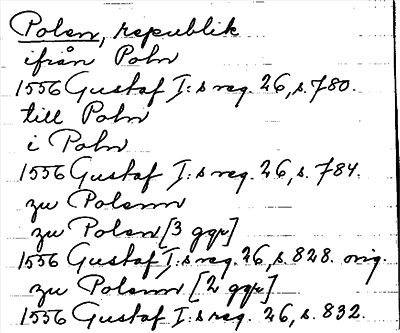 Polen, republik
ifrån Poln
1556 Gustaf I:s reg. 26, s. 780.
till Poln
i Poln
1556 Gustaf I:s reg. 26, s. 784.
zu Polenn
zu Polen [3 ggr]
1556 Gustaf I:s reg. 26, s. 828. orig.
zu Polenn [2 ggr]
1556 Gustaf I:s reg. 26, s. 832.